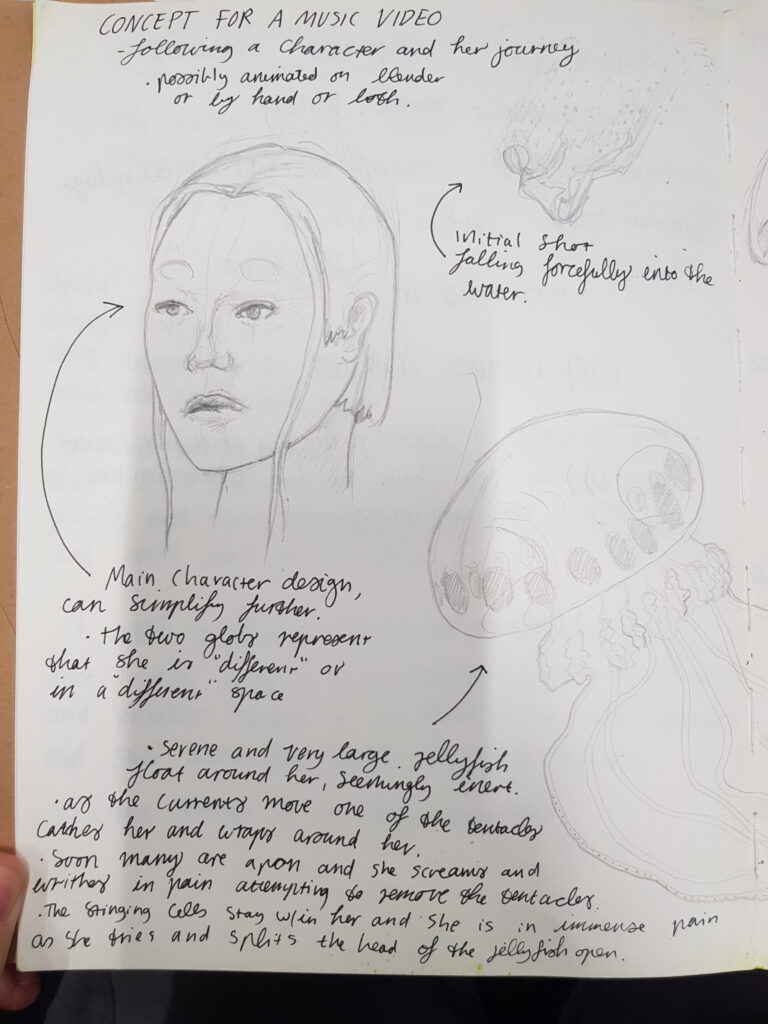 CONCEPT FOR A MUSIC VIDEO
- following a character and her journey
· possibly animated on blender
or by hand or both.
Initial shot
falling forcefully into the
water.
Main character design,
can simplify further.
· the two globs represent
that she is "different" or
in a "different" space
· Serene and very large jellyfish
float around her, seemingly inert.
· as the currents move one of the tentacles
catches her and wraps around her.
· Soon many are apon and she screams and
writhes in pain attempting to remove the tentacles.
· The stinging cells stay w/in her and she is in immense pain
as she tries and splits the head of the jellyfish open.